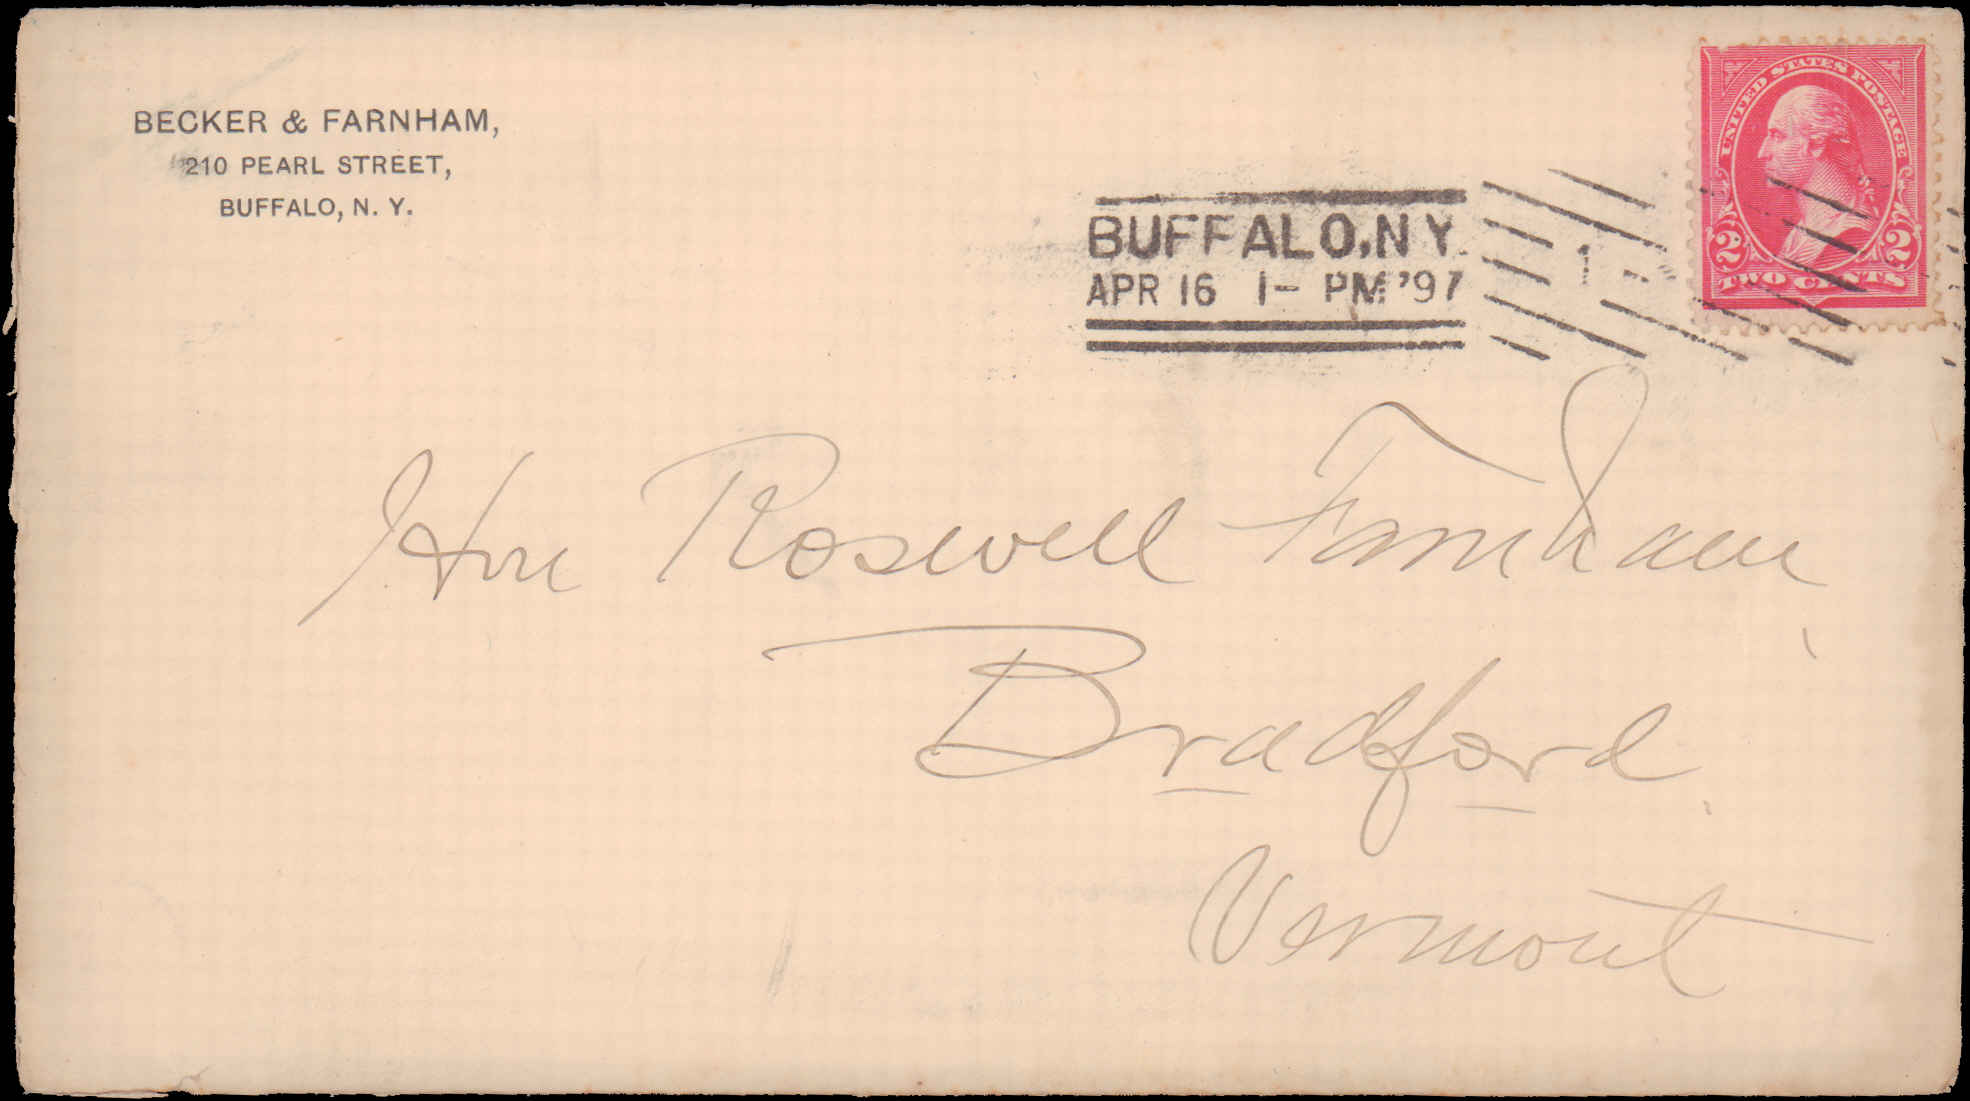 BECKER & FARNHAM,
210 PEARL STREET,
BUFFALO, N. Y.
BUFFALO, N Y.
APR 16 1- PM '97
1
UNITED STATES POSTAGE
2 2
TWO CENTS
Hon Roswell Farnham,
Bradford,
Vermont